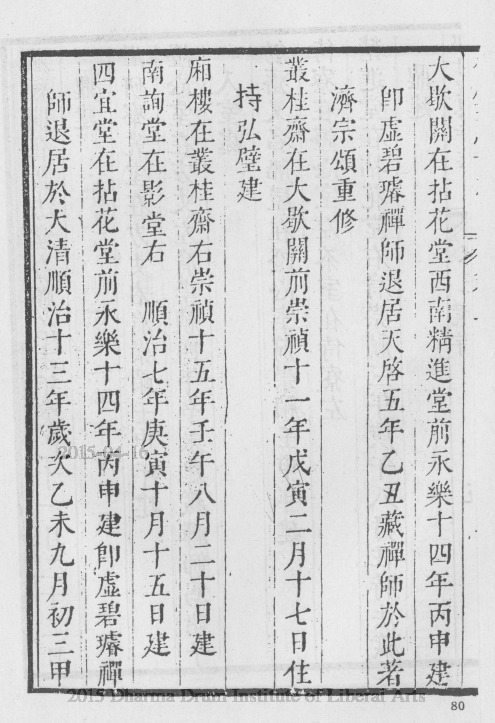 大歇關在拈花堂西南精進堂前永樂十四年丙申建
卽虛碧璿禪師退居天啓五年乙丑藏禪師於此著
濟宗頌重修
叢桂齋在大歇關前崇禎十一年戊寅二月十七日住
持弘璧建
廂樓在叢桂齋右崇禎十五年壬午八月二十日建
南詢堂在影堂右　順治七年庚寅十月十五日建
四宜堂在拈花堂前永樂十四年丙申建卽虛碧璿禪
師退居於大清順治十三年歲次乙未九月初三甲
2015-04-16
2015 Dharma Drum Institute of Liberal Arts
80